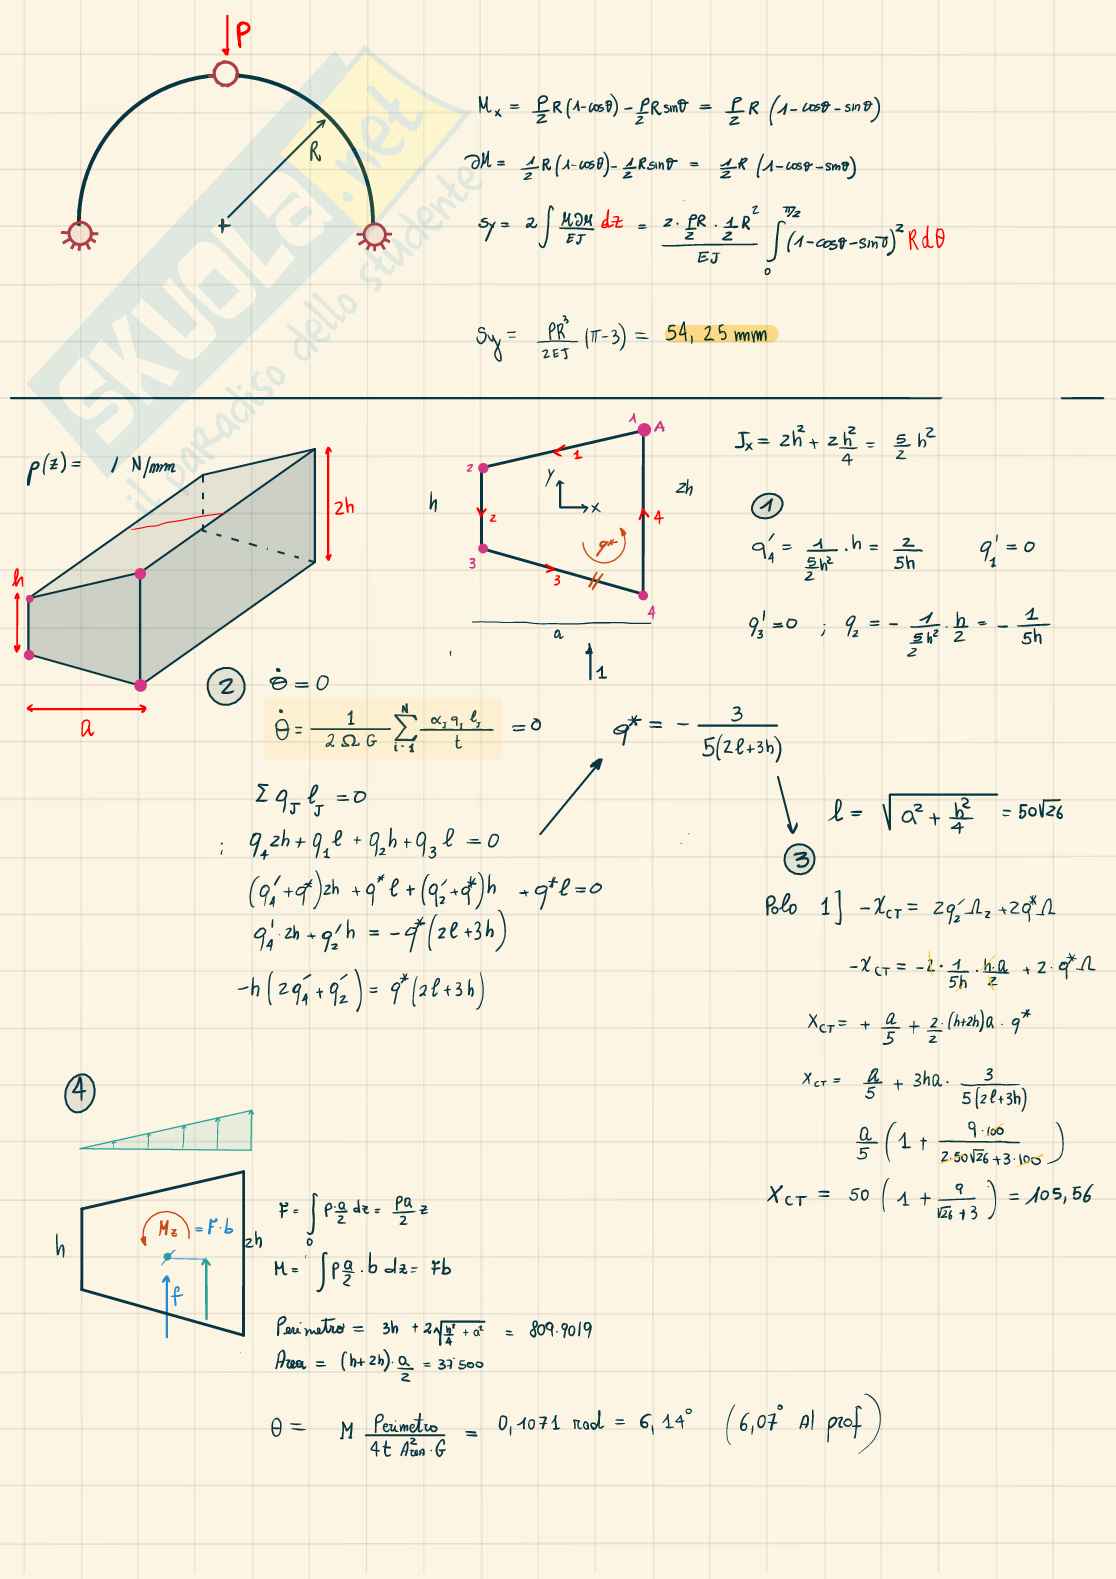 P
R
M_x = P/2 R (1-cosθ) - P/2 R sinθ = P/2 R (1-cosθ-sinθ)
∂M = 1/2 R (1-cosθ) - 1/2 R sinθ = 1/2 R (1-cosθ-sinθ)
Sy = 2 ∫ M∂M/EJ dz = 2·PR/2·1/2 R²/EJ ∫_0^{π/2} (1-cosθ-sinθ)² R dθ
Sy = PR³/2EJ (π-3) = 54,25 mm
SKUOLA.net
il paradiso dello studente
p(z) = 1 N/mm
2h
h
a
1 A
2
1
h
y
x
2h
2
4
q*
3
3
4
a
1
J_x = 2h² + 2h²/4 = 5/2 h²
1
q₄' = 1/(5/2 h²) · h = 2/5h q₁' = 0
q₃' = 0 ; q₂ = - 1/(5/2 h²) · h/2 = - 1/5h
2 θ̇ = 0
θ̇ = 1/(2ΩG) Σ_{i=1}^{N} α_J q_J l_J / t = 0
Σ q_J l_J = 0
; q₄ 2h + q₁ l + q₂ h + q₃ l = 0
(q₄' + q*) 2h + q* l + (q₂' + q*) h + q* l = 0
q₄' 2h + q₂' h = - q* (2l+3h)
-h (2q₄' + q₂') = q* (2l+3h)
q* = - 3/(5(2l+3h))
l = √(a² + h²/4) = 50√26
3
Polo 1] -X_CT = 2q₂' Ω₂ + 2q* Ω
-X_CT = -2 · 1/5h · h·a/2 + 2·q* Ω
X_CT = + a/5 + 2/2 · (h+2h) a · q*
X_CT = a/5 + 3ha · 3/(5(2l+3h))
a/5 (1 + 9·100/(2·50√26 + 3·100))
X_CT = 50 (1 + 9/(√26+3)) = 105,56
4
h
M_z = F·b
2h
f
F = ∫_0 P·a/2 dz = Pa/2 z
M = ∫ P a/2 · b dz = Fb
Perimetro = 3h + 2√(h²/4 + a²) = 809.9019
Area = (h+2h)·a/2 = 37500
θ = M Perimetro/(4t Area²·G) = 0,1071 rad = 6,14° (6,07° Al prof)